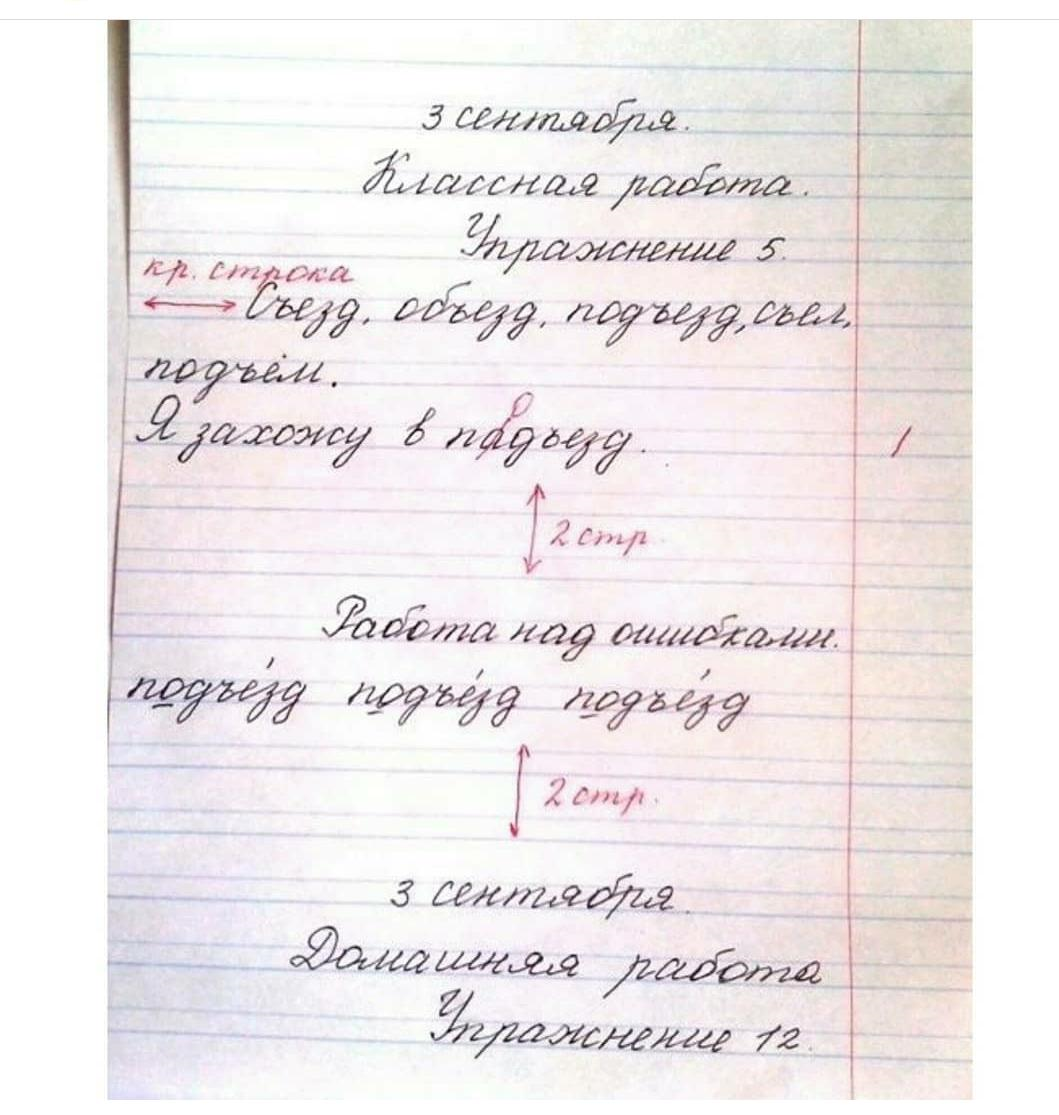 3 сентября.
Классная работа.
Упражнение 5.
кр. строка
Съезд, объезд, подъезд, съел,
подъём.
о
Я захожу в падъезд.
/
2 стр.
Работа над ошибками.
подъе́зд подъе́зд подъе́зд
2 стр.
3 сентября.
Домашняя работа
Упражнение 12.